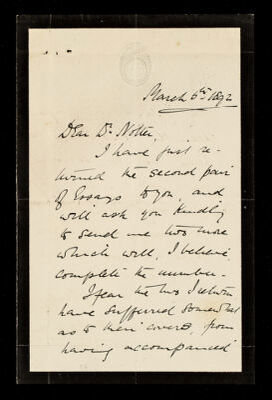 March 6th 1892
Dear Dr. Notter,
I have just re-
turned the second pair
of Essays to you, and
will ask you kindly
to send me two more
which will, I believe,
complete the number.
I fear the two I return
have suffered somewhat
as to their covers, from
having accompanied